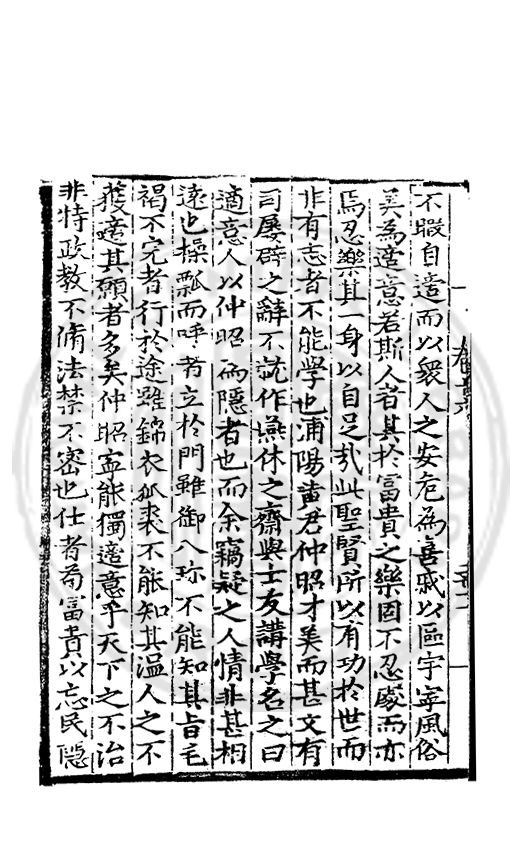 不暇自適而以衆人之安危為喜戚以區宇寧風俗
美為適意若斯人者其於富貴之樂固不忍處而亦
焉忍樂其一身以自足㢤此聖賢所以有功於世而
非有志者不能學也浦陽黄君仲昭才美而甚文有
司屢辟之辭不就作燕休之齋與士友講學名之曰
適意人以仲昭為隱者也而余竊疑之人情非甚相
遠也操瓢而呼者立於門雖御八珍不能知其旨毛
褐不完者行於途雖錦衣狐裘不能知其温人之不
獲適其願者多矣仲昭寍能獨適意乎天下之不治
非特政教不脩法禁不密也仕者苟富貴以忘民隱